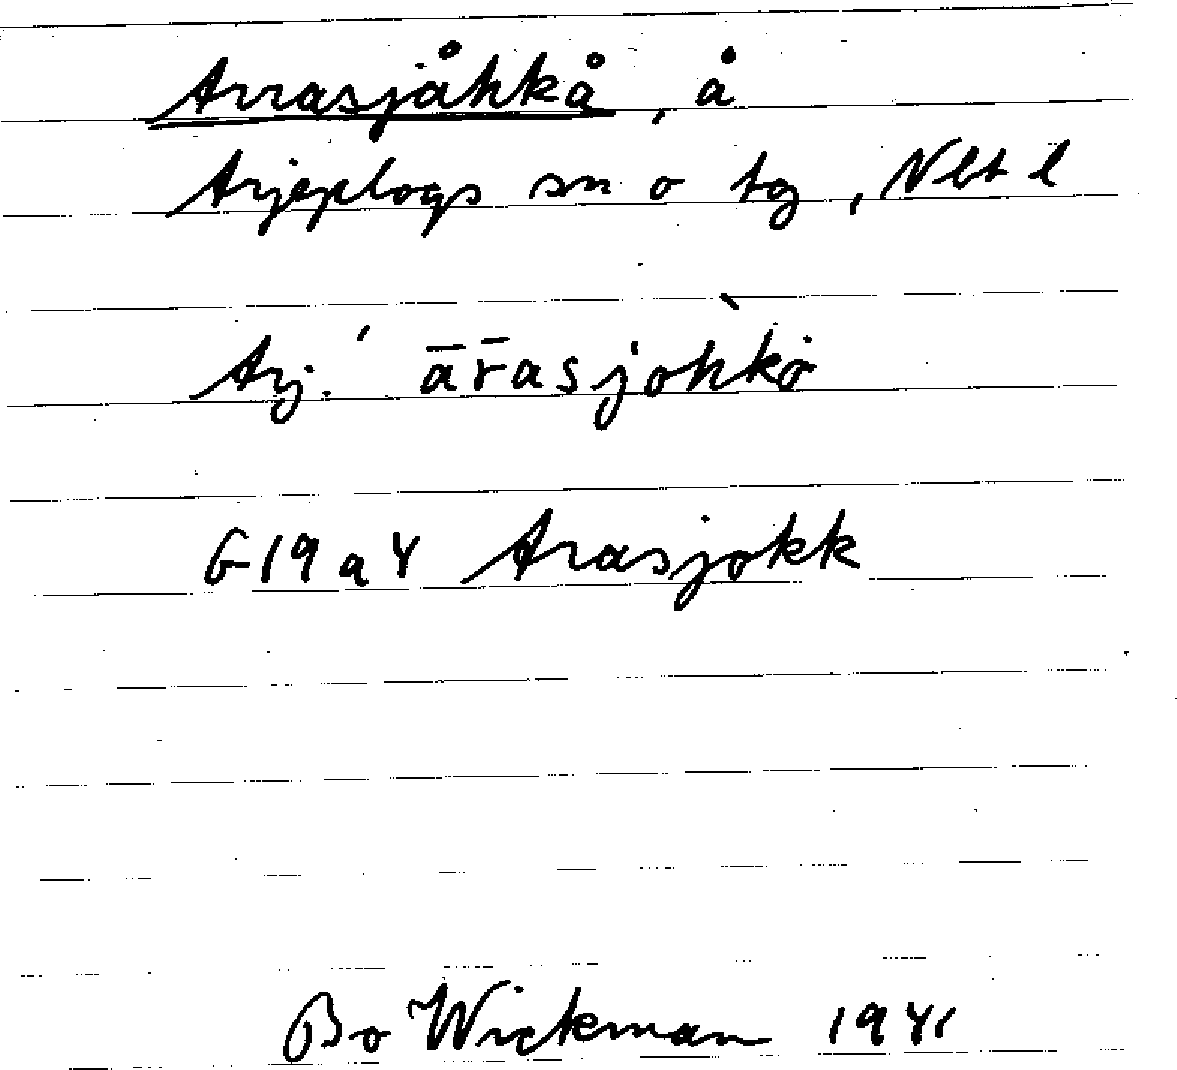 Arrasjåhkå, å
Arjeplogs sn o tg, Nbt l
Arj. ´ā r̄asˈjohkò̀
G19a4 Arasjokk
Bo Wickman 1941